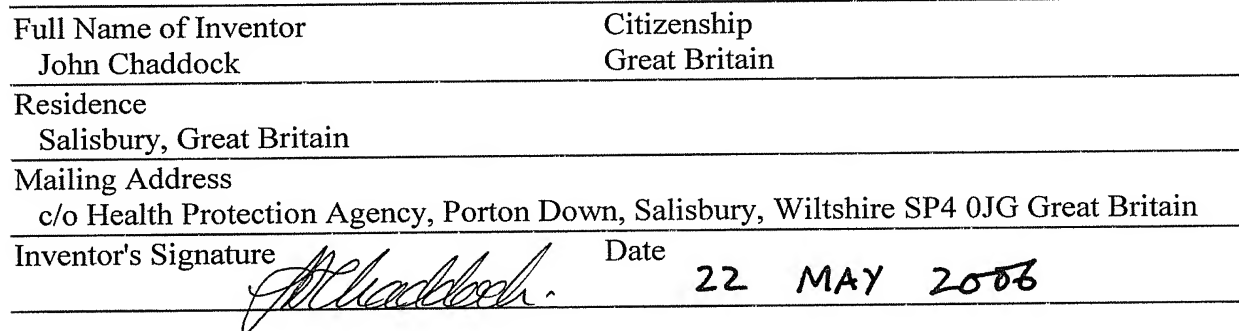 Full Name of Inventor Citizenship
John Chaddock Great Britain
Residence
Salisbury, Great Britain
Mailing Address
c/o Health Protection Agency, Porton Down, Salisbury, Wiltshire SP4 0JG Great Britain
Inventor's Signature JAChaddock. Date 22 MAY 2006